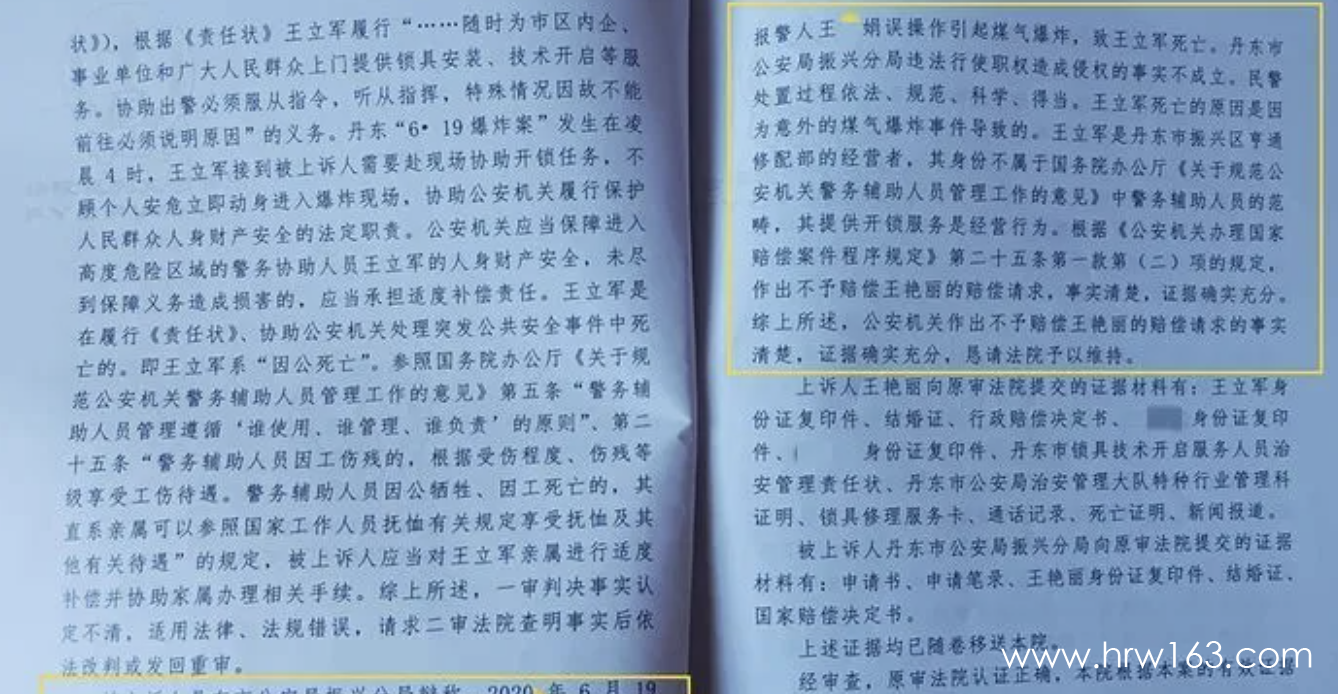 状》），根据《责任状》王立军履行“……随时为市区内企、
事业单位和广大人民群众上门提供锁具安装、技术开启等服
务。协助出警必须服从指令，听从指挥，特殊情况因故不能
前往必须说明原因”的义务。丹东“6•19爆炸案”发生在凌
晨4时，王立军接到被上诉人需要赴现场协助开锁任务，不
顾个人安危立即动身进入爆炸现场，协助公安机关履行保护
人民群众人身财产安全的法定职责。公安机关应当保障进入
高度危险区域的警务协助人员王立军的人身财产安全，未尽
到保障义务造成损害的，应当承担适度补偿责任。王立军是
在履行《责任状》、协助公安机关处理突发公共安全事件中死
亡的。即王立军系“因公死亡”。参照国务院办公厅《关于规
范公安机关警务辅助人员管理工作的意见》第五条“警务辅
助人员管理遵循‘谁使用、谁管理、谁负责’的原则”、第二
十五条“警务辅助人员因工伤残的，根据受伤程度、伤残等
级享受工伤待遇。警务辅助人员因公牺牲、因工死亡的，其
直系亲属可以参照国家工作人员抚恤有关规定享受抚恤及其
他有关待遇”的规定，被上诉人应当对王立军亲属进行适度
补偿并协助家属办理相关手续。综上所述，一审判决事实认
定不清，适用法律、法规错误，请求二审法院查明事实后依
法改判或发回重审。
被上诉人丹东市公安局振兴分局辩称，2020年6月19
报警人王 娟误操作引起煤气爆炸，致王立军死亡。丹东市
公安局振兴分局违法行使职权造成侵权的事实不成立。民警
处置过程依法、规范、科学、得当。王立军死亡的原因是因
为意外的煤气爆炸事件导致的。王立军是丹东市振兴区亨通
修配部的经营者，其身份不属于国务院办公厅《关于规范公
安机关警务辅助人员管理工作的意见》中警务辅助人员的范
畴，其提供开锁服务是经营行为。根据《公安机关办理国家
赔偿案件程序规定》第二十五条第一款第（二）项的规定，
作出不予赔偿王艳丽的赔偿请求，事实清楚，证据确实充分。
综上所述，公安机关作出不予赔偿王艳丽的赔偿请求的事实
清楚，证据确实充分，恳请法院予以维持。
上诉人王艳丽向原审法院提交的证据材料有：王立军身
份证复印件、结婚证、行政赔偿决定书、 身份证复印
件、 身份证复印件、丹东市锁具技术开启服务人员治
安管理责任状、丹东市公安局治安管理大队特种行业管理科
证明、锁具修理服务卡、通话记录、死亡证明、新闻报道。
被上诉人丹东市公安局振兴分局向原审法院提交的证据
材料有：申请书、申请笔录、王艳丽身份证复印件、结婚证、
国家赔偿决定书。
上述证据均已随卷移送本院。
经审查，原审法院认证正确，本院根据本案的有效证据
www.hrw163.com